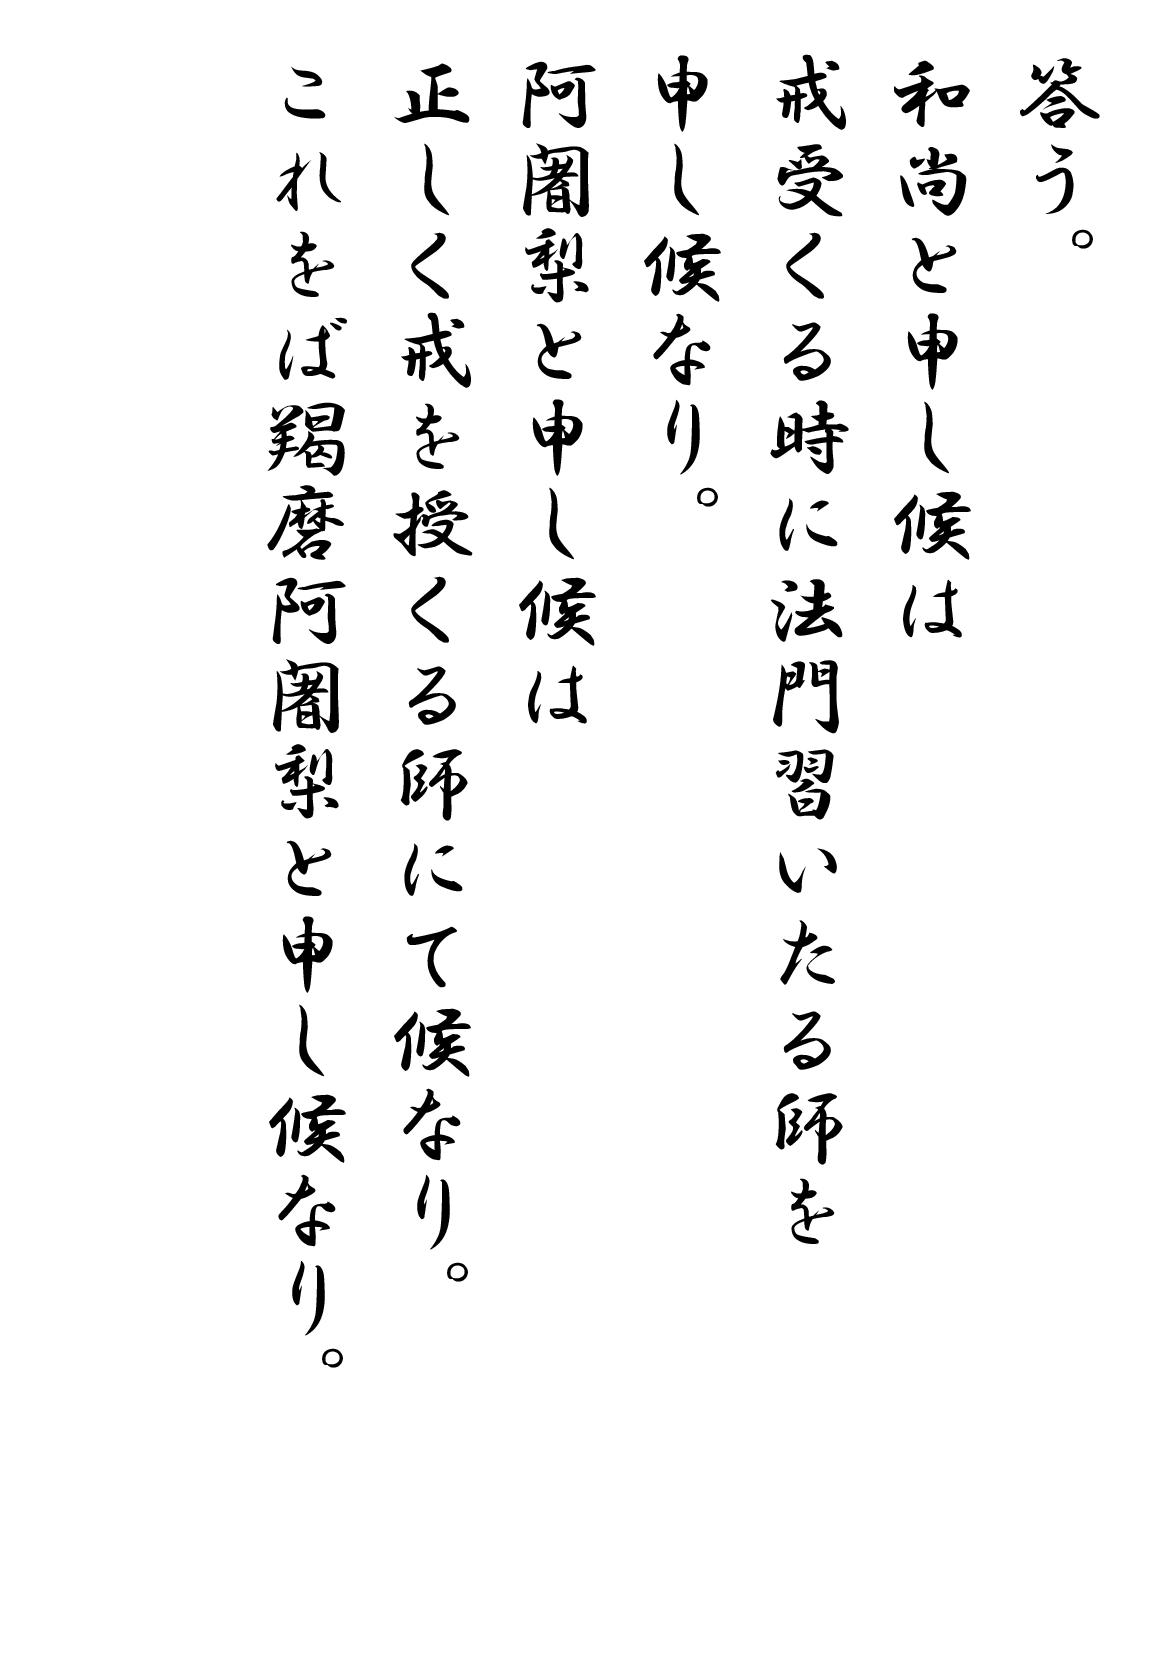 答う。
和尚と申し候は
戒受くる時に法門習いたる師を
申し候なり。
阿闍梨と申し候は
正しく戒を授くる師にて候なり。
これをば羯磨阿闍梨と申し候なり。